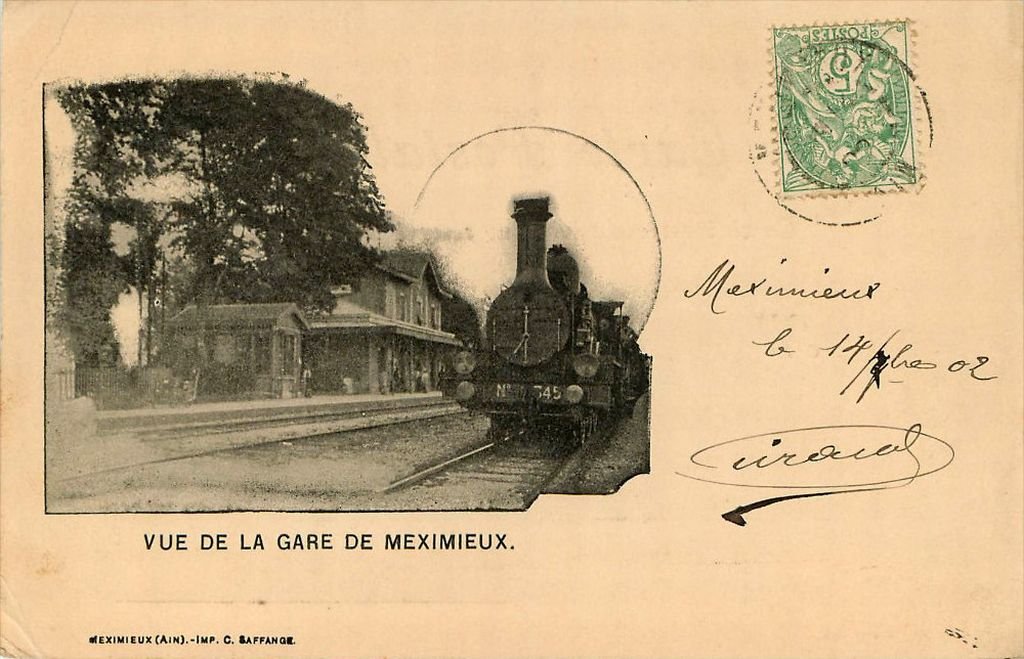 POSTES
5
Meximieux
le 14/7bre 02
Giraud
Nº 545
VUE DE LA GARE DE MEXIMIEUX.
MEXIMIEUX (AIN).-IMP. C. SAFFANGE.